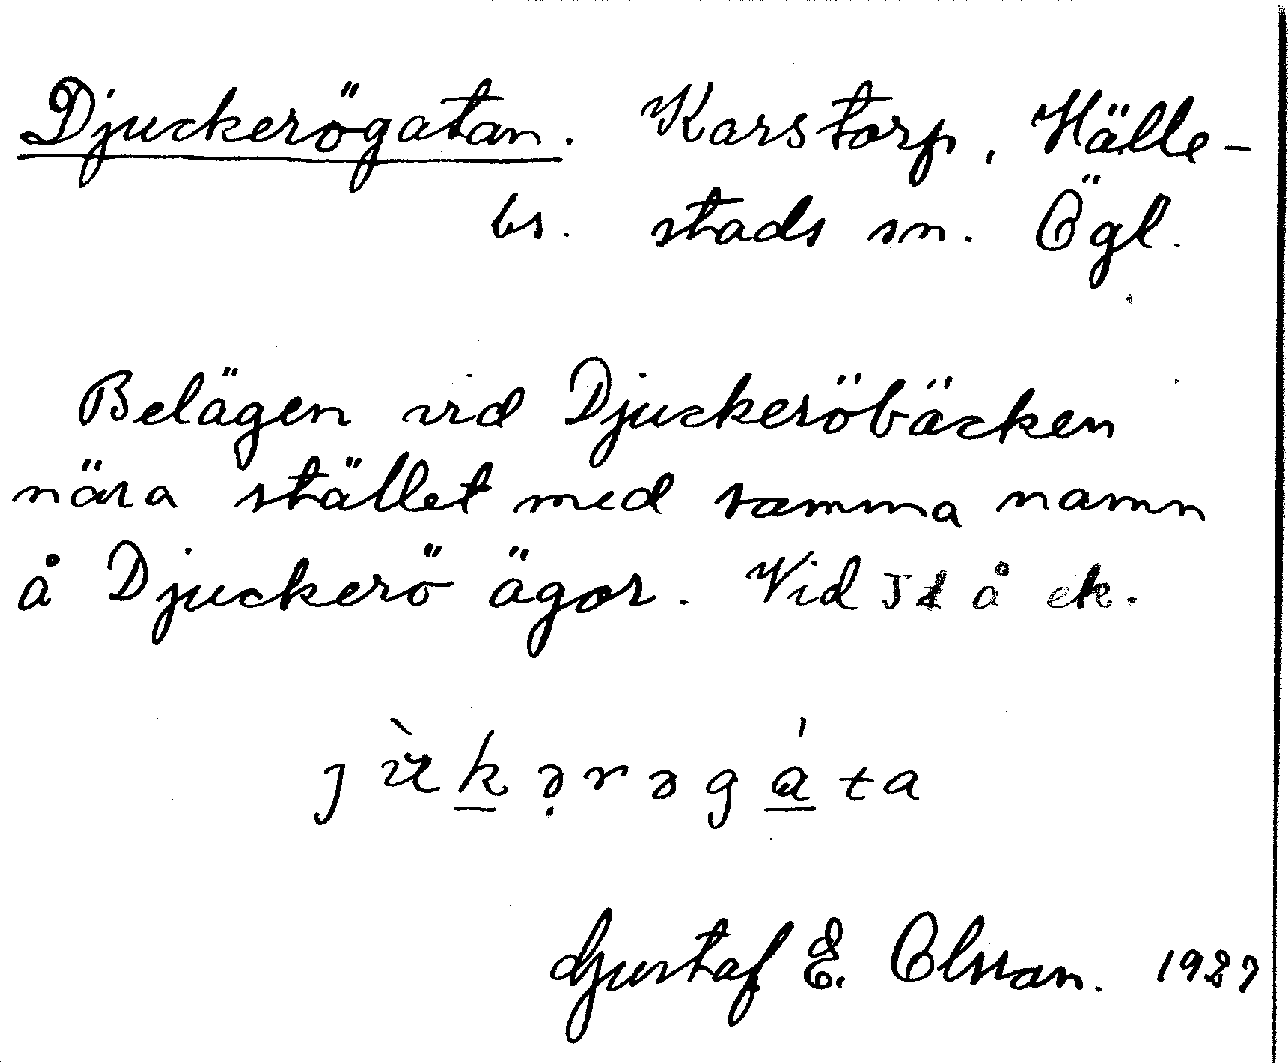 Djuckerögatan. Karstorp, Hälle-
bs. stads sn. Ögl.
Belägen vid Djuckeröbäcken
nära stället med samma namn
å Djuckerö ägor. Vid å ek.
Gustaf E. Olsson. 1927